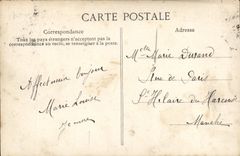 CARTE POSTALE
Correspondance
Tous les pays étrangers n'acceptent pas la
correspondance au recto, se renseigner à la poste.
Affectueux bonjour
Marie Louise
Melle Marie Durand
Rue de Paris
St Hilaire du Harcouet
Manche